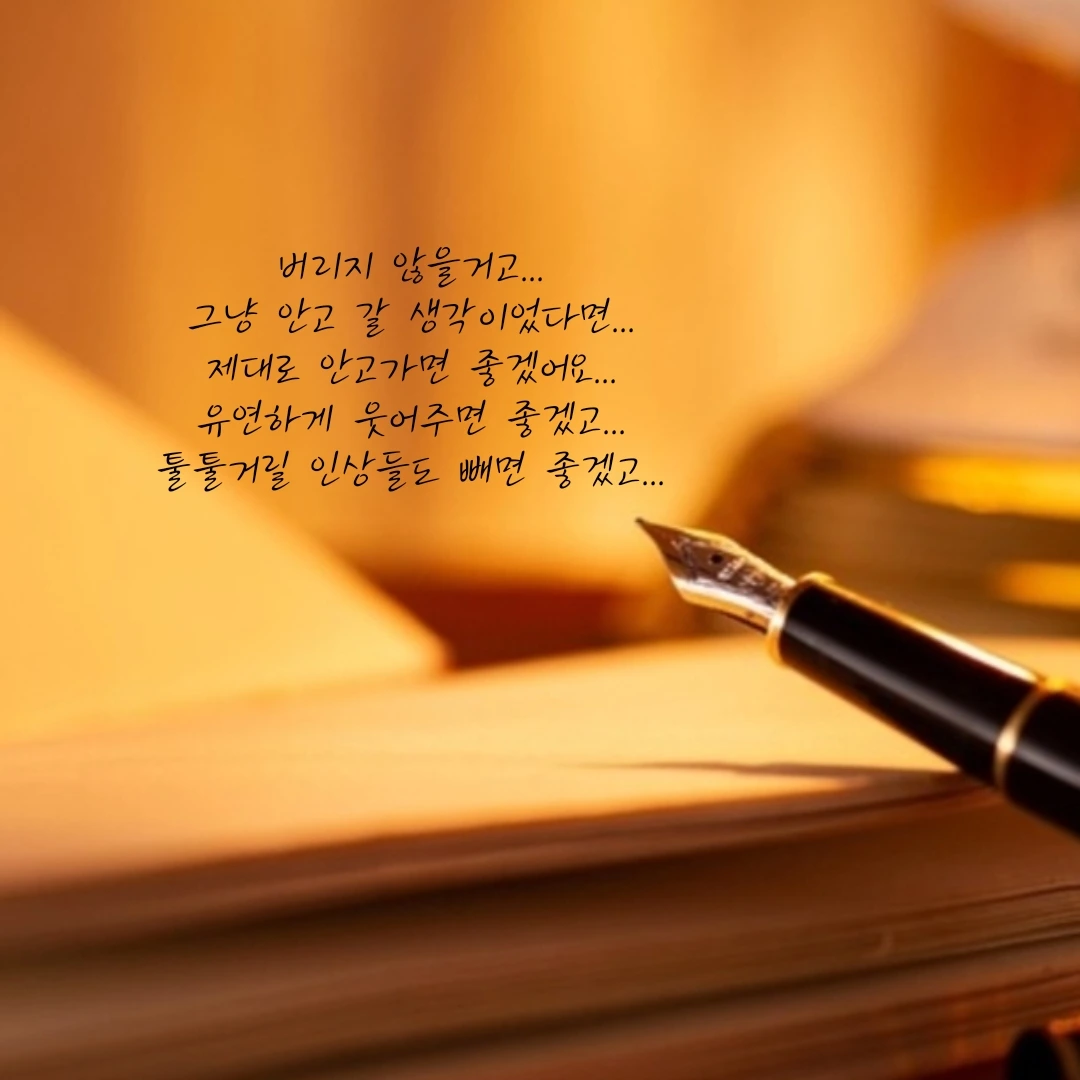 버리지 않을거고...
그냥 안고 갈 생각이었다면...
제대로 안고가면 좋겠어요...
유연하게 웃어주면 좋겠고...
툴툴거릴 인상들도 빼면 좋겠고...